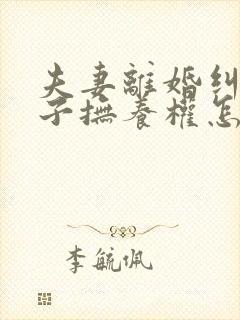 夫妻離婚糾
子撫養權怎
李毓佩